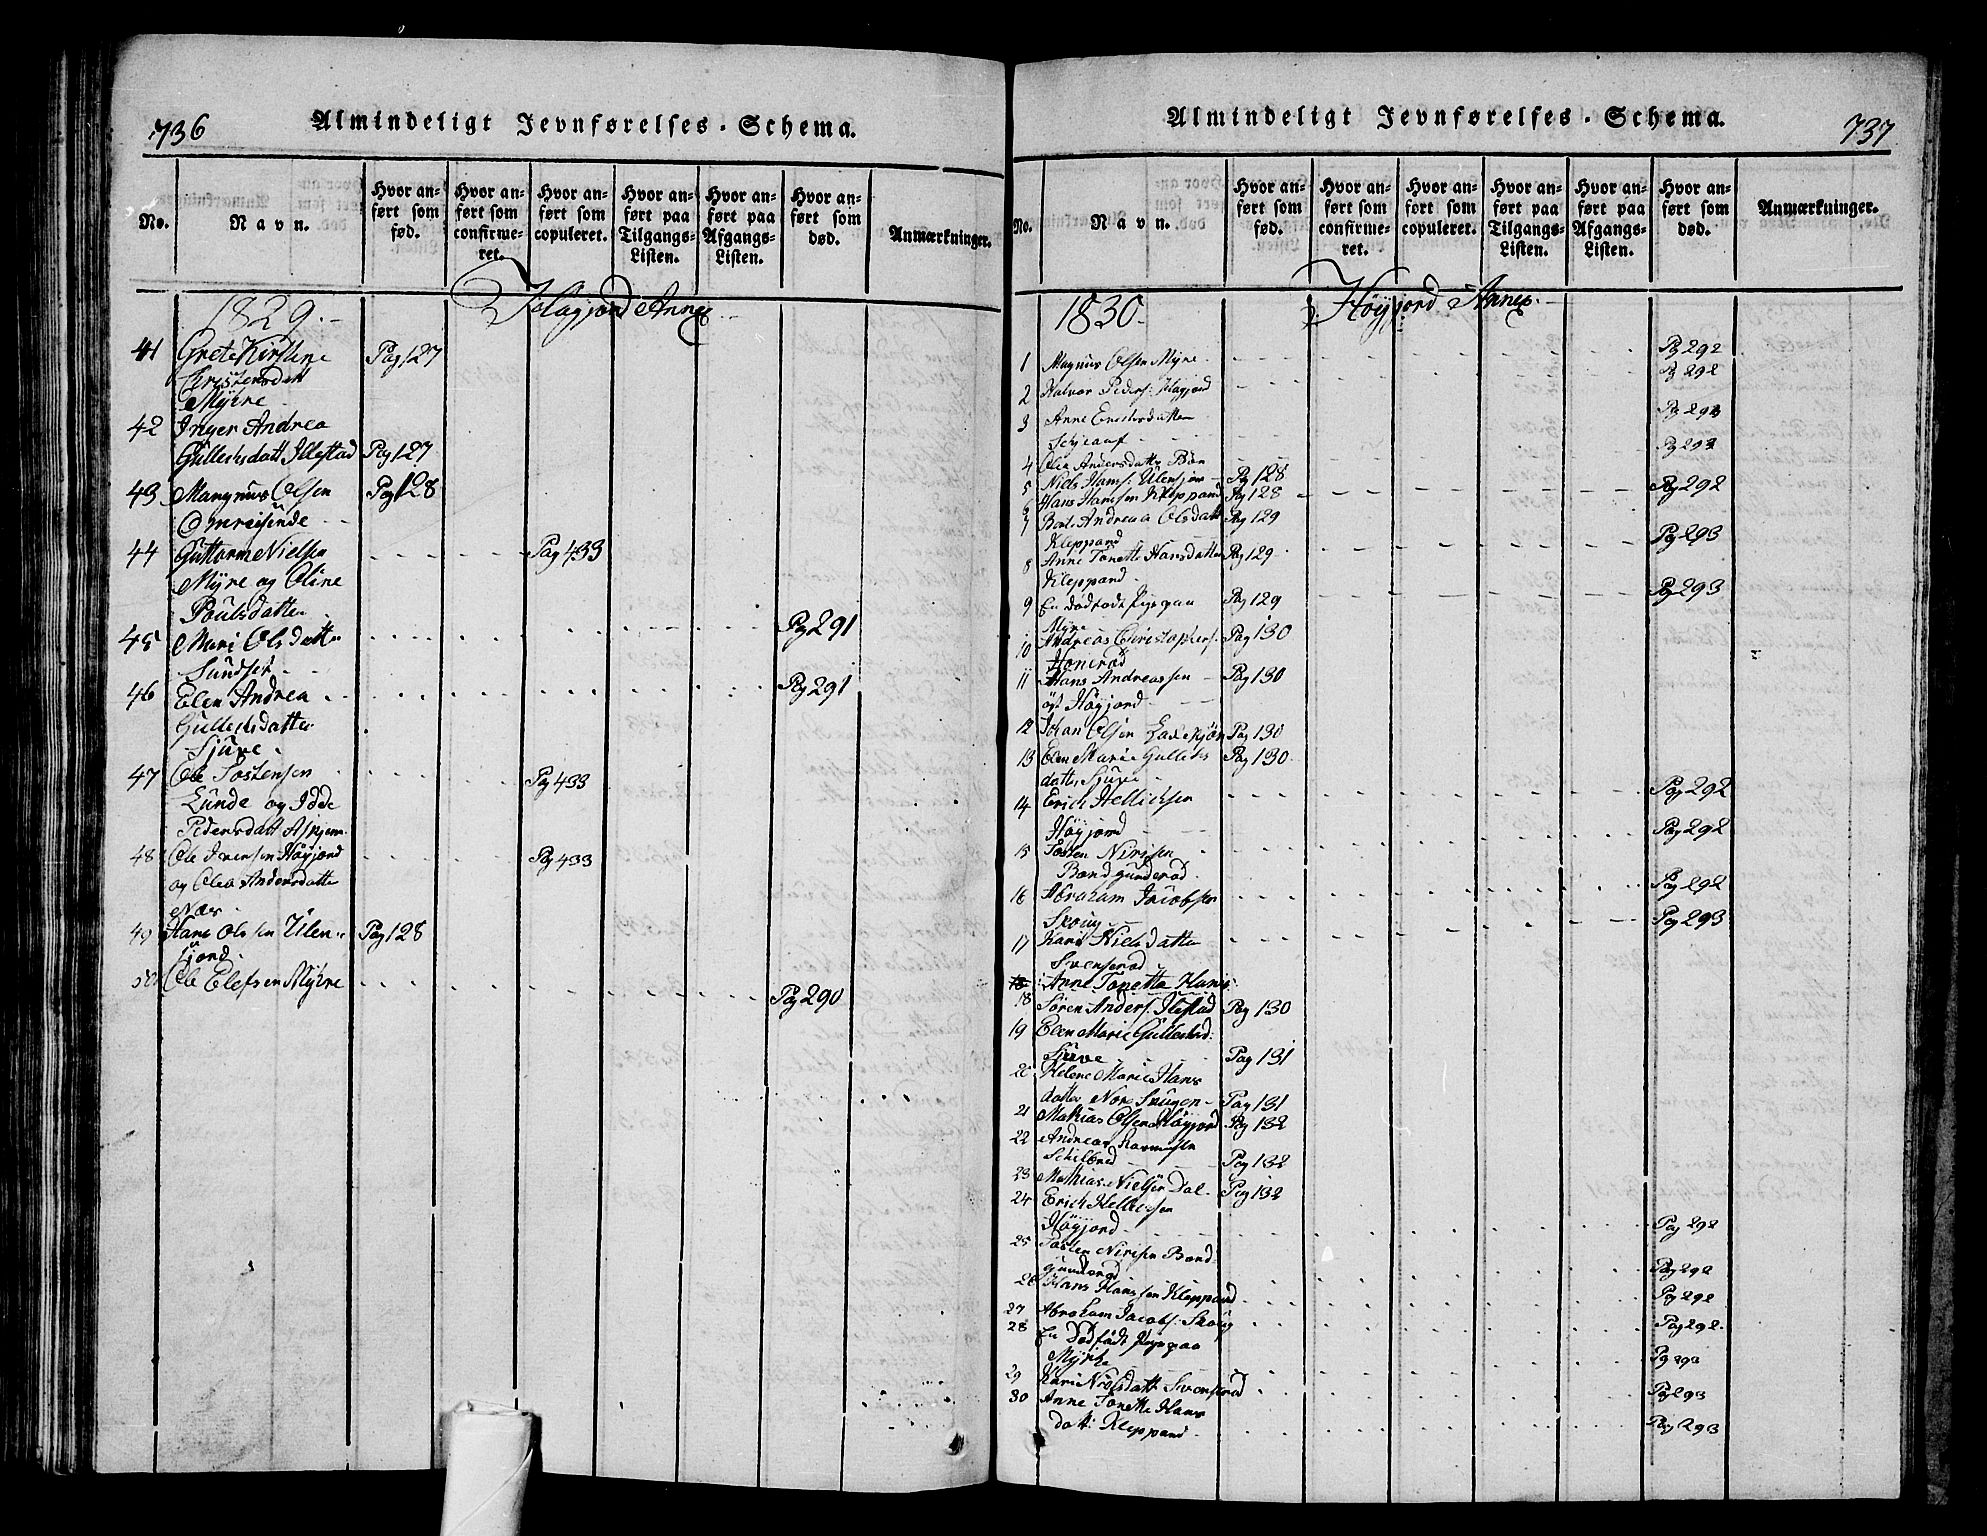 736
Almindeligt Jevnførelses-Schema.
No.
Navn.
Hvor an-
ført som
fød.
Hvor an-
ført som
confirme-
ret.
Hvor an-
ført som
copuleret.
Hvor an-
ført paa
Tilgangs-
Listen.
Hvor an-
ført paa
Afgangs-
Listen.
Hvor an-
ført som
død.
Anmærkninger.
1829.
Høyjord Annex
41 Grete Kirstine Pag 127
Christensdatt
Myhre
42 Inger Andrea
Gullechsdatt Illestad Pag 127
43 Mangnus Olsen Pag 128
Omreisende
44 Guttorm Nielsen Pag 433
Myre og Oline
Poulsdatter
45 Mari Olsdatter Pag 291
Sundset
46 Elen Andrea Pag 291
Gullechsdatter
Sjuve
47 Ole Tostensen Pag 433
Lunde og Idde
Pedersdatt Askjem
48 Ole Iversen Høyjord Pag 433
og Olea Andersdatter
Næs
49 Hans Olssen Ulen- Pag 128
sjord
50 Ole Elefsen Myhre Pag 290
737
Almindeligt Jevnførelses-Schema.
No.
Navn.
Hvor an-
ført som
fød.
Hvor an-
ført som
confirme-
ret.
Hvor an-
ført som
copuleret.
Hvor an-
ført paa
Tilgangs-
Listen.
Hvor an-
ført paa
Afgangs-
Listen.
Hvor an-
ført som
død.
Anmærkninger.
1830.
Høyjord Annex
1 Magnus Olsen Myre Pag 292
2 Halvor Peders: Høyjord Pag 292
3 Anne Ericksdatter Pag 293
4 Olea Andersdatter Pag 293
5 Niels Hans: Ulensjor Pag 128
6 Hans Hanssen Kleppand Pag 128 Pag 292
7 Andrea Olsdatt Pag 129
Kleppand Pag 293
8 Anne Tonette Hansdatter Pag 129
Kleppand Pag 293
9 En dødfødt Pige paa Pag 129
Myre
10 Andreas Christophers: Pag 130
Honerød
11 Hans Andreassen Pag 130
Høyjord
12 Johan Olsen Pag 130
13 Elen Marie Gullichs Pag 130
datter Sjuve
14 Erich Hellichsen Pag 292
Høyjord Pag 292
15 Tosten Nirisen
Bondgunderød Pag 292
16 Abraham Jacobsen
Skoug Pag 293
17 Kari Nielsdatter
Svenserød
Anne Tonette Hans
18 Søren Anders: Illestad Pag 130
19 Elen Marie Gullechsd:
Sjuve Pag 131
20 Helene Marie Hans
datter Nore Skugen Pag 131
21 Mathias Olsen Høyjord Pag 132
22 Andreas Rasmussen
Schilbred Pag 132
23 Mathias Nielsen Dal Pag 132
24 Erich Hellichsen
Høyjord Pag 292
25 Tosten Nirisen Bond
gunderød Pag 292
26 Hans Hanssen Kleppand Pag 292
27 Abraham Jacobs: Skoug Pag 292
28 En Dødfødt Pige paa
Myhre Pag 292
29 Kari Nielsdatt Svenserød Pag 293
30 Anne Tonette Hans
datt: Kleppand Pag 293